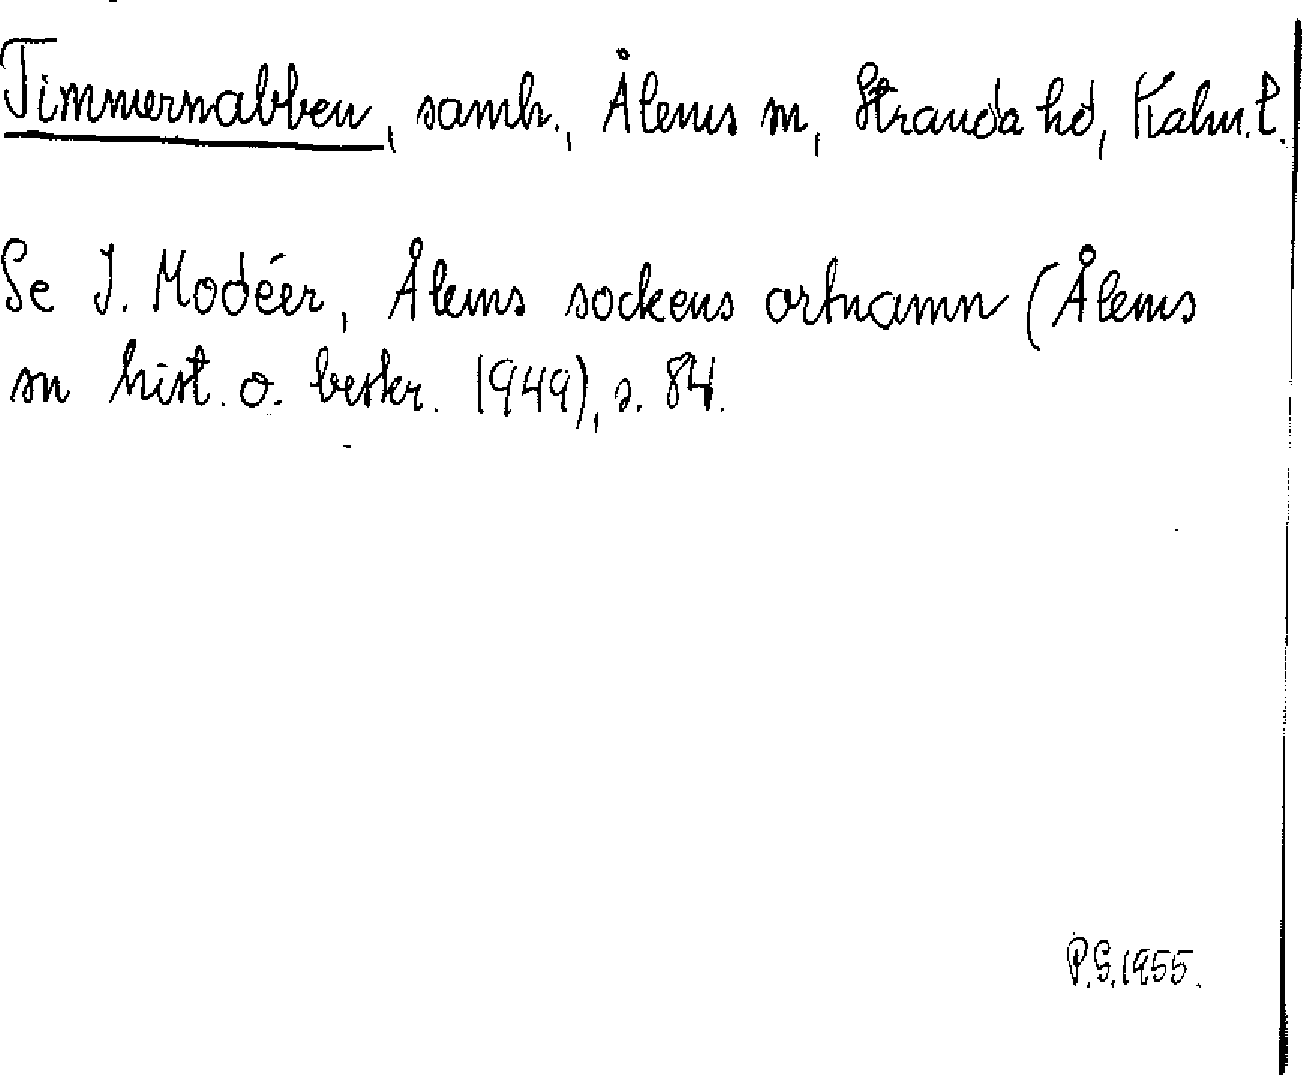 Timmernabben, samh., Ålems sn, Stranda hd, Kalm. l.
Se I. Modéer, Ålems sockens ortnamn (Ålems
sn hist. o. beskr. 1949), s. 84.
P.S. 1955.